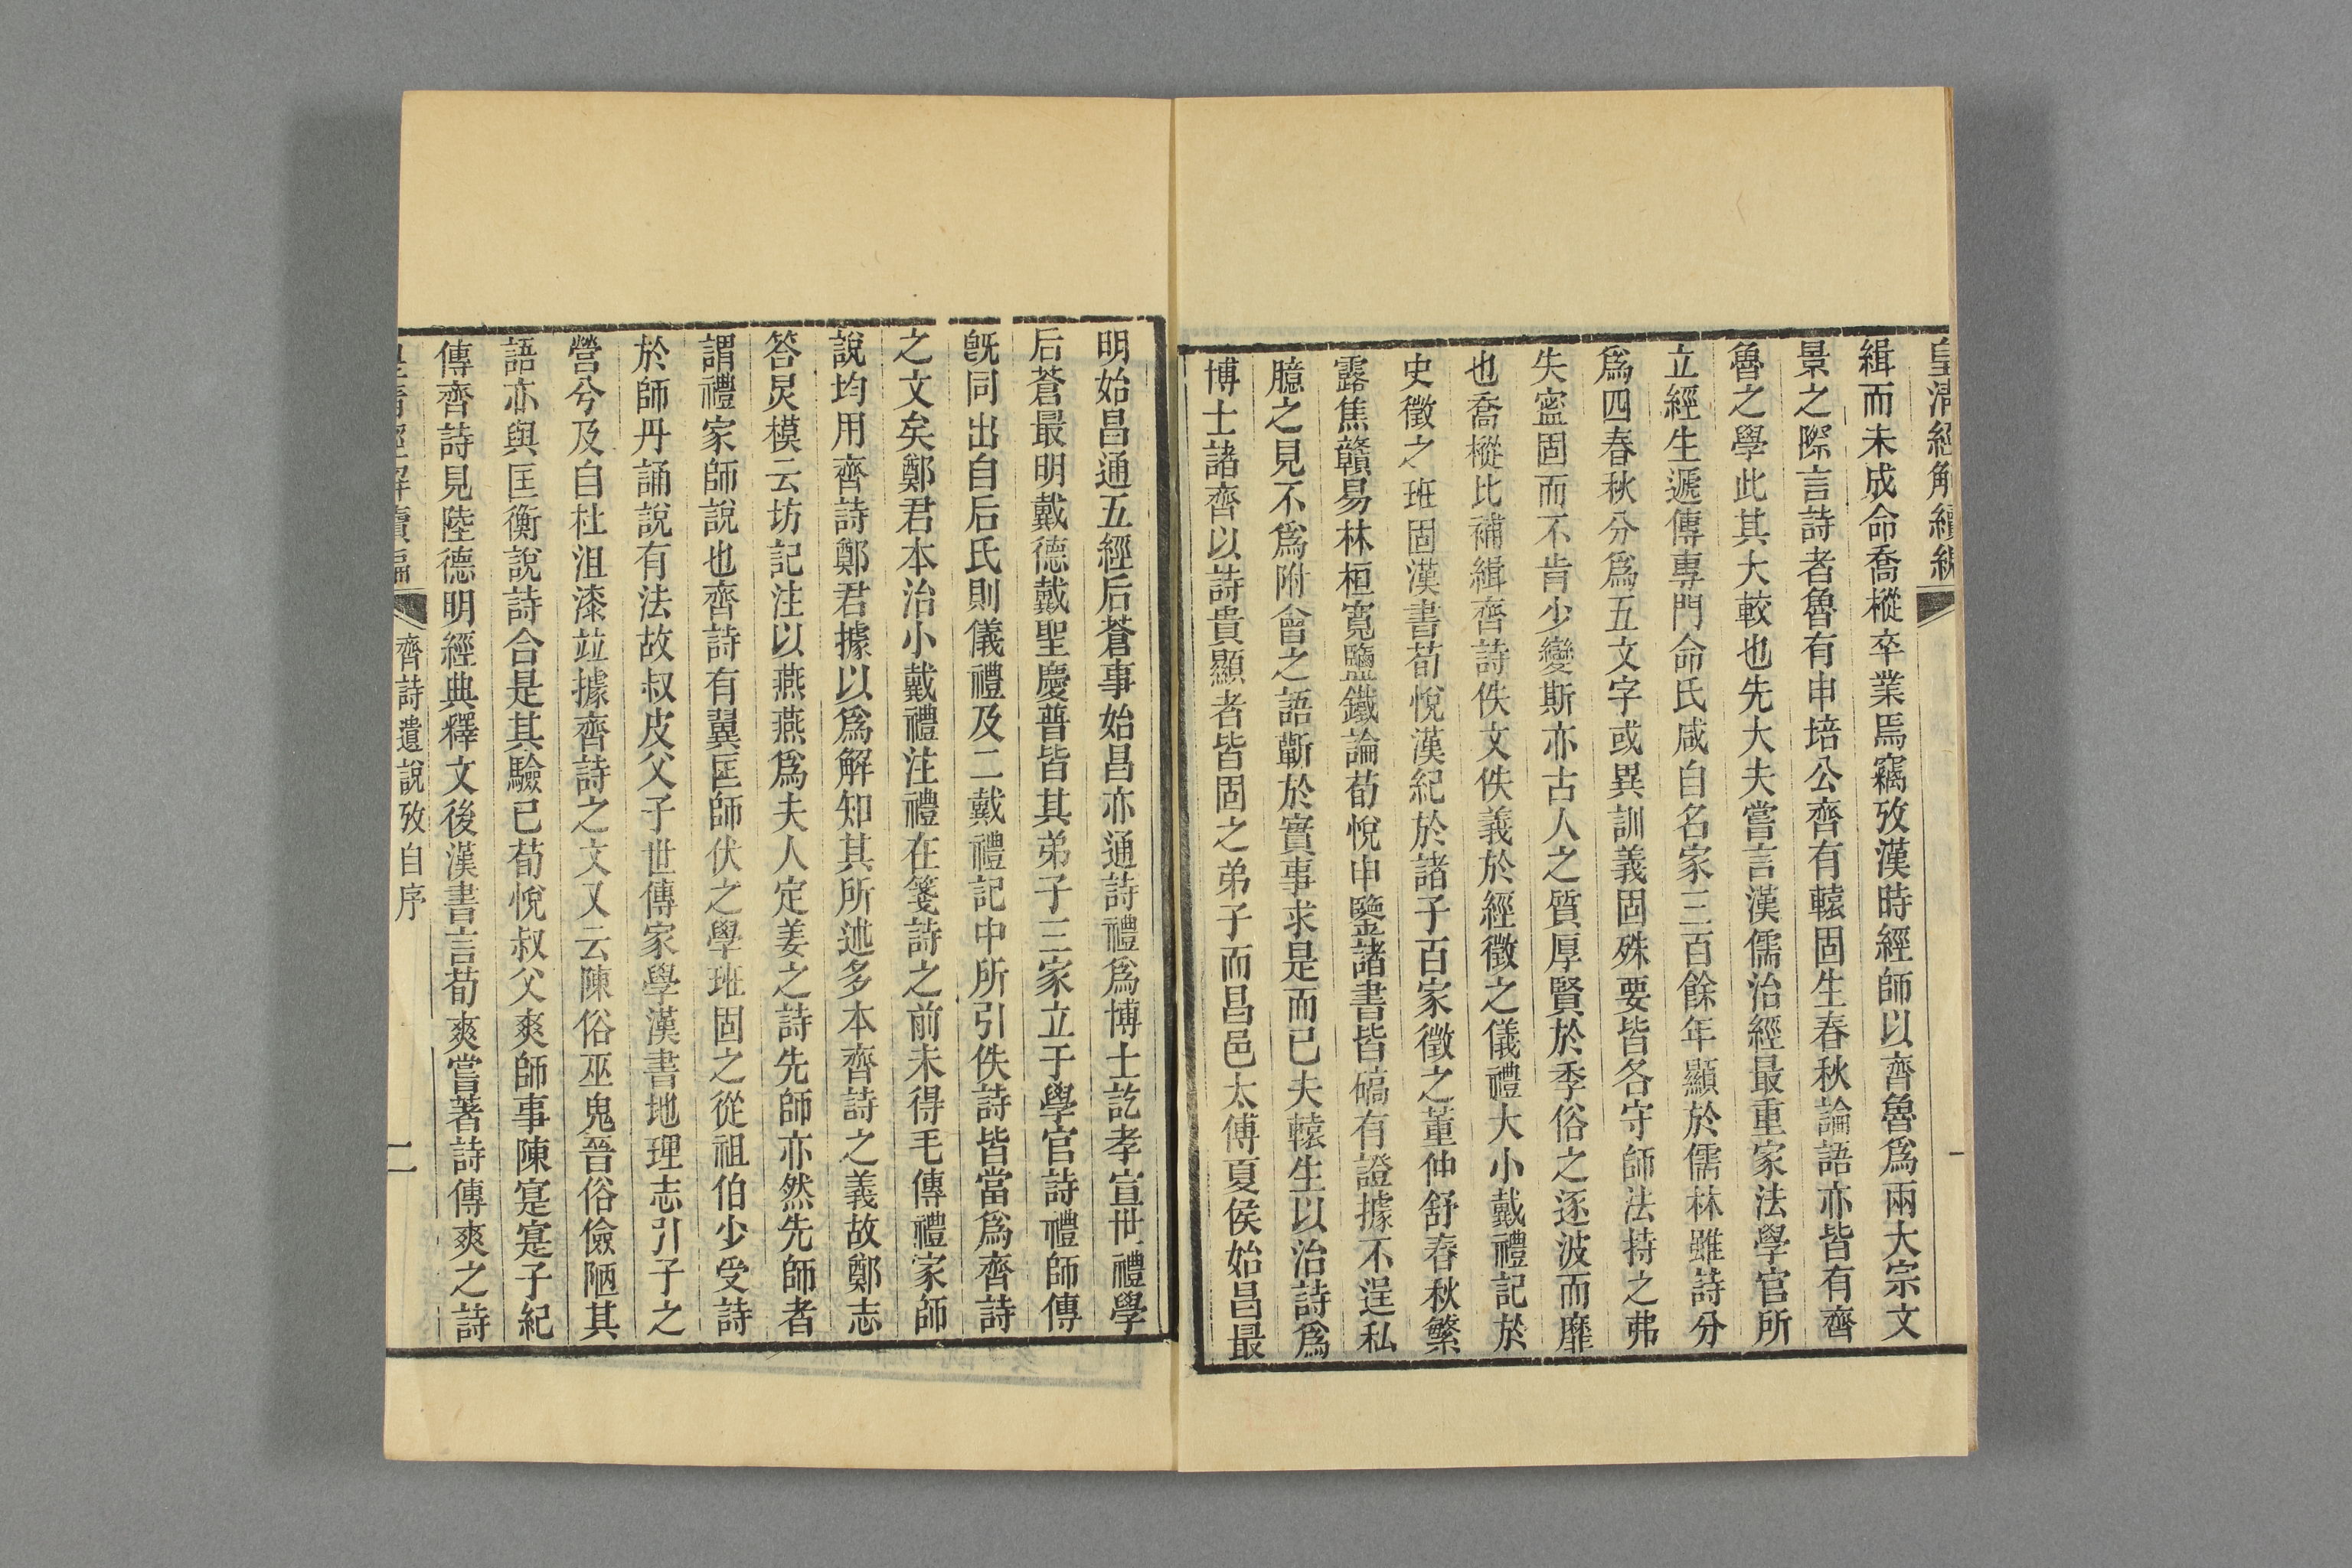 皇清經解續編
一
緝而未成命喬樅卒業焉竊攷漢時經師以齊魯爲兩大宗文
景之際言詩者魯有申培公齊有轅固生春秋論語亦皆有齊
魯之學此其大較也先大夫嘗言漢儒治經最重家法學官所
立經生遞傳專門命氏咸自名家三百餘年顯於儒林雖詩分
爲四春秋分爲五文字或異訓義固殊要皆各守師法持之弗
失寍固而不肯少變斯亦古人之質厚賢於季俗之逐波而靡
也喬樅比補緝齊詩佚文佚義於經徵之儀禮大小戴禮記於
史徵之班固漢書荀悅漢紀於諸子百家徵之董仲舒春秋繁
露焦贛易林桓寬鹽鐵論荀悅申鑒諸書皆碻有證據不逞私
臆之見不爲附會之語蘄於實事求是而已夫轅生以治詩爲
博士諸齊以詩貴顯者皆固之弟子而昌邑太傅夏侯始昌最
明始昌通五經后蒼事始昌亦通詩禮爲博士訖孝宣世禮學
后蒼最明戴德戴聖慶普皆其弟子三家立于學官詩禮師傳
旣同出自后氏則儀禮及二戴禮記中所引佚詩皆當爲齊詩
之文矣鄭君本治小戴禮注禮在箋詩之前未得毛傳禮家師
說均用齊詩鄭君據以爲解知其所述多本齊詩之義故鄭志
答炅模云坊記注以燕燕爲夫人定姜之詩先師亦然先師者
謂禮家師說也齊詩有翼匡師伏之學班固之從祖伯少受詩
於師丹誦說有法故叔皮父子世傳家學漢書地理志引子之
營兮及自杜沮漆竝據齊詩之文又云陳俗巫鬼晉俗儉陋其
語亦與匡衡說詩合是其驗已荀悅叔父爽師事陳寔寔子紀
傳齊詩見陸德明經典釋文後漢書言荀爽嘗著詩傳爽之詩
皇清經解續編
齊詩遺說攷自序
二